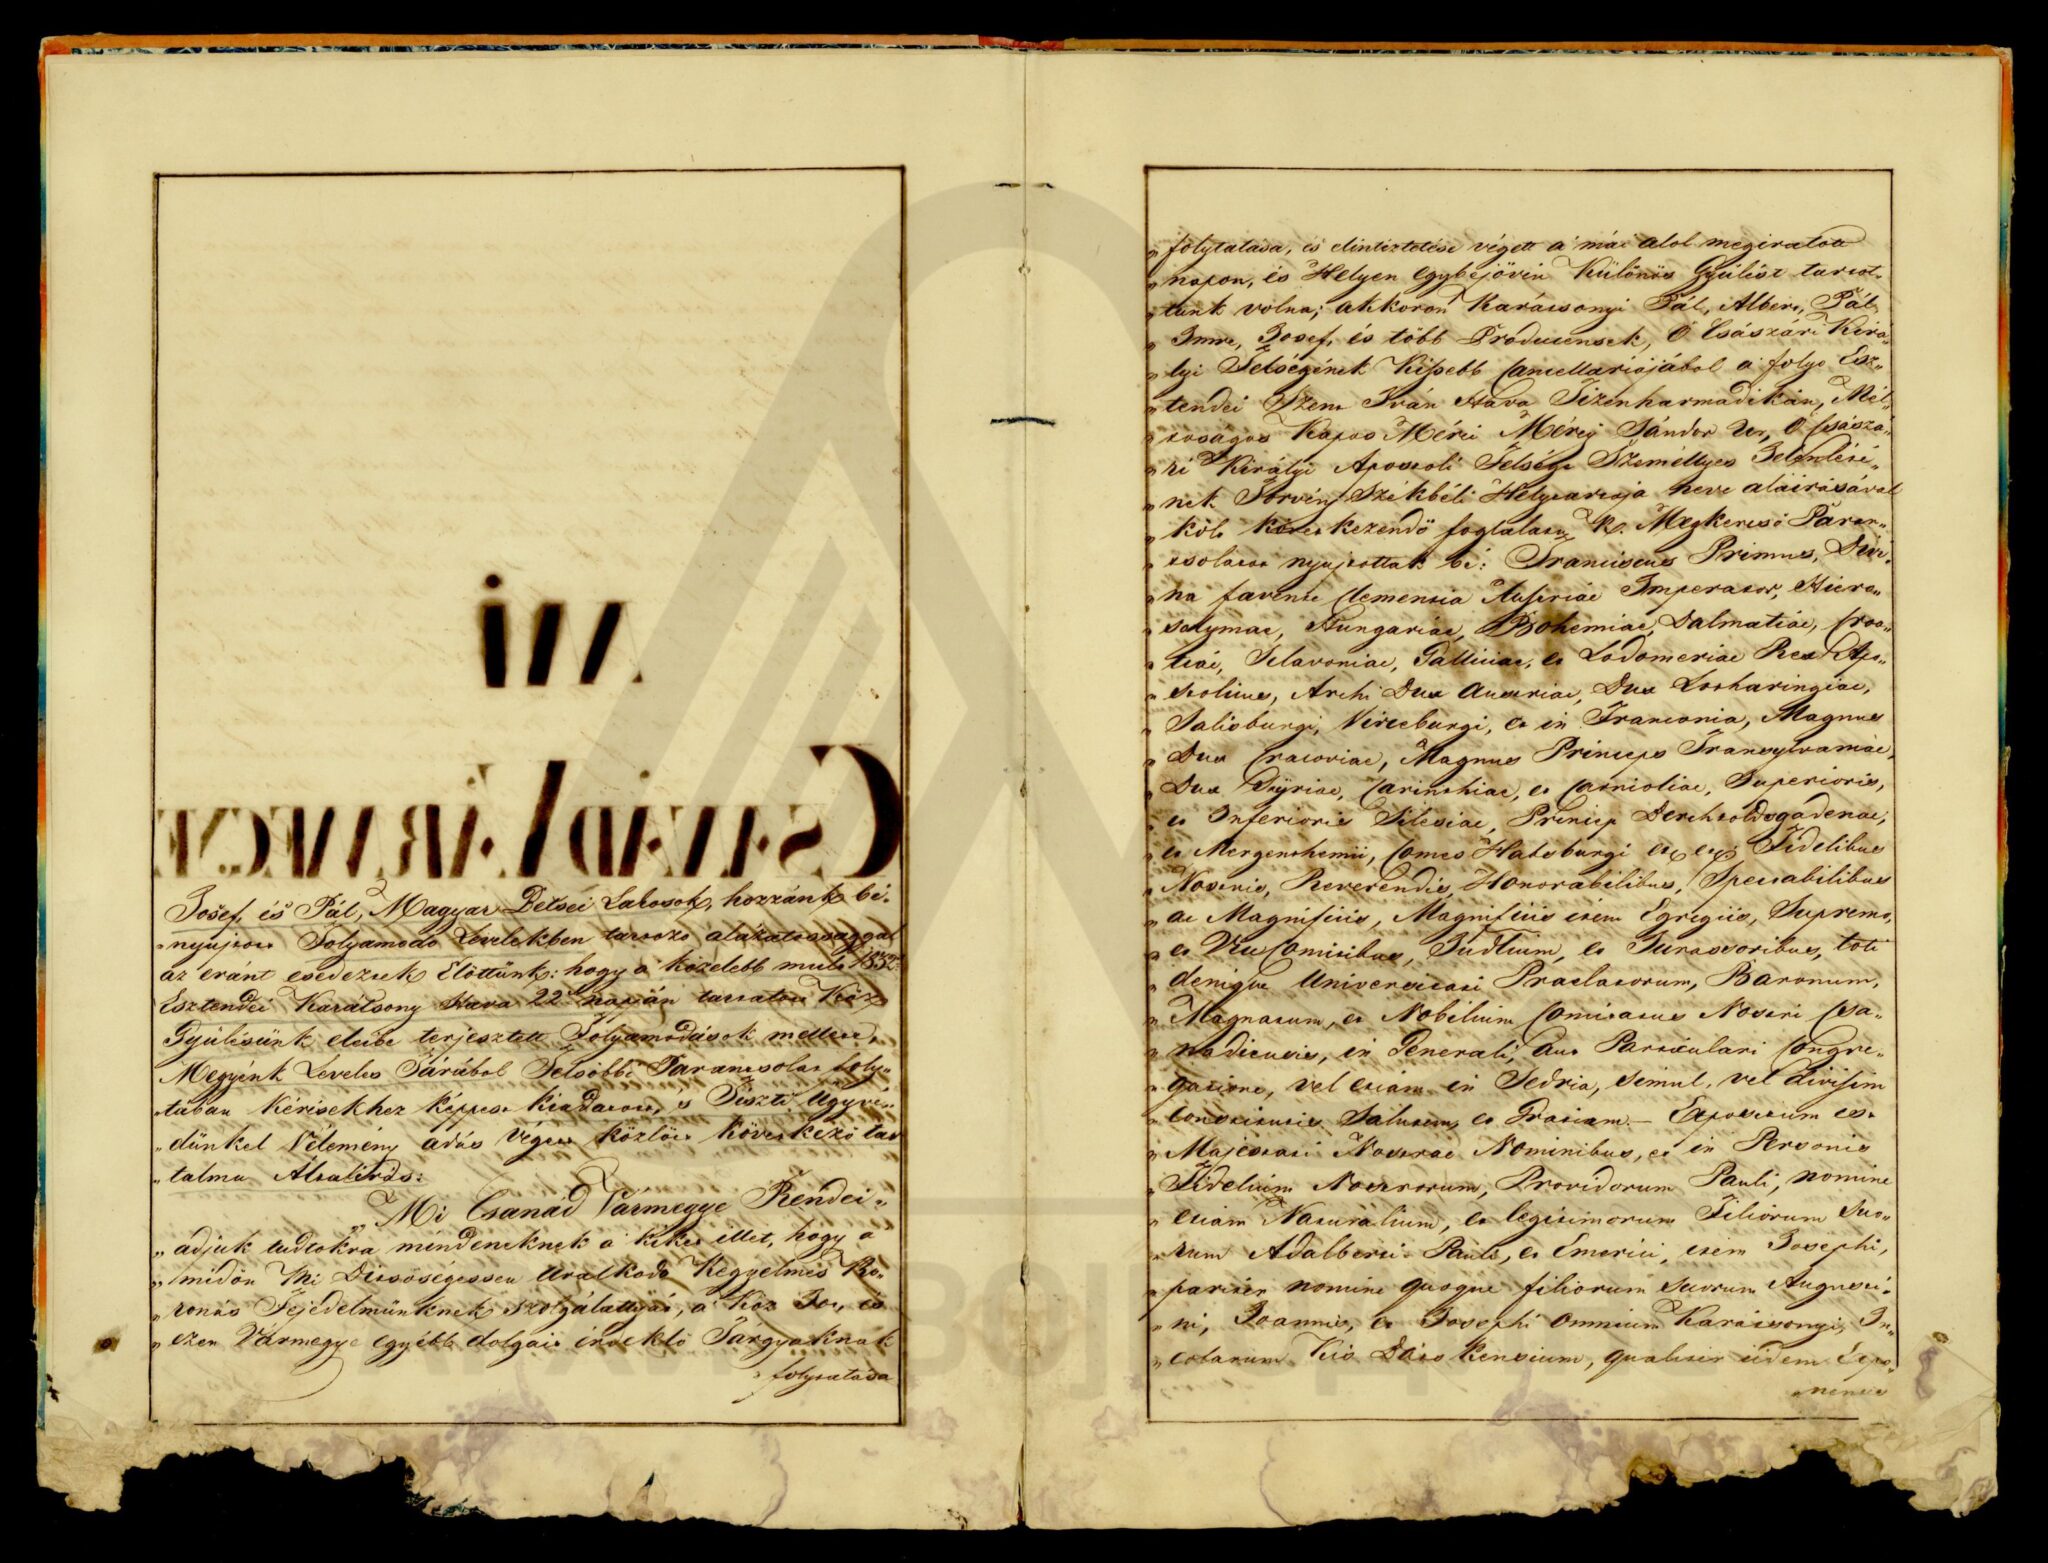 Mi
CSANÁD VÁRMEGYE
Josef, és Pál, Magyar Betsei Lakosok, hozzánk bé„
„nyujtott Folyamodó Levelekben tartozó alázatossággal
az eránt esedeztek Elöttünk: hogy a' közelebb mult 1832.
Esztendei Karátsony Hava 22 napján tartatott Köz
Gyülésünk eleibe terjesztett Folyamodások mellett,
Megyénk Leveles Tárából Felsöbb Parantsolat foly„
„tában kérésekhez képpest kiadatott, s Tiszti Ügyvé„
„dünkel Vélemény adás végett közlött következö tar
„talmu Átalirás:
„Mi Csanád Vármegye Rendei„
„adjuk tudtokra mindeneknek a' kiket illet, hogy a
„midön Mi Ditsöségessen Uralkodó Kegyelmes Ko„
„ronás Fejedelmünknek szolgálattyát, a' Köz Jót, és
„ezen Vármegye egyébb dolgait érdeklö Tárgyaknak
folytatása
„folytatása, és elintéztetése végett a' már alol megiratott
„napon, és Helyen egybejövén Különös Gyülést tartot„
„tunk volna; akkoron Karátsonyi Pál, Albert, Pál,
„Imre, Josef, és több Producensek, Ö Császári Kirá„
„lyi Felségének Kissebb Cancellariájából a' folyó Esz„
„tendei Szent Iván Hava Tizenharmadikán, Mél„
„tóságos Kapos Mérei Mérey Sándor Ur, Ö Császá„
„ri Királyi Apostoli Felsége Személlyes Jelenlété„
„nek Törvény Székbéli Helytartója neve aláirásával
„költ következendö foglalatu K. Megkeresö Paran„
„tsolatot nyujtottak bé: Franciscus Primus, Divi„
„na favente Clementia Austriae Imperator, Hiero„
„solymae, Hungariae, Bohemiae, Dalmatiae, Croa„
„tiae, Sclavoniae, Galliciae, et Lodomeriae Rex Apo„
„stolicus, Archi Dux Austriae, Dux Lotharingiae,
„Salisburgi, Virceburgi, et in Franconia, Magnus
„Dux Cracoviae, Magnus Princeps Transylvaniae,
„Dux Styriae, Carinthiae, et Carnioliae, Superioris,
„et Inferioris Silesiae, Princeps Berchtoldsgadenae,
„et Mergenthemii, Comes Habsburgi etc etc; Fidelibus
„Nostris, Reverendis, Honorabilibus, Spectabilibus
„ac Magnificis, Magnificis item Egregiis, Supremo,
„et Vice Comitibus, Judlium, et Jurassoribus, toti
„denique Universitati Praelatorum, Baronum,
„Magnatum, et Nobilium Comitatus Nostri Csa„
„nadiensis, in Generali, aut Particulari Congre„
„gatione, vel etiam in Sedria, simul, vel divisim
„constitutis Salutem, et Gratiam.– Expositum est
„Majestati Nostrae Nominibus, et in Personis
„Fidelium Nostrorum, Providorum Pauli, nomine
„etiam Naturalium, et legitimorum Filiorum Suo„
„rum Adalberti Pauli, et Emerici, item Josephi,
„pariter nomine quoque filiorum suorum Augusti„
„ni, Joannis, et Josephi omnium Karátsonyi, In„
„colarum Kis Dersi­ensium, qualiter iidem Expo„
„nentes